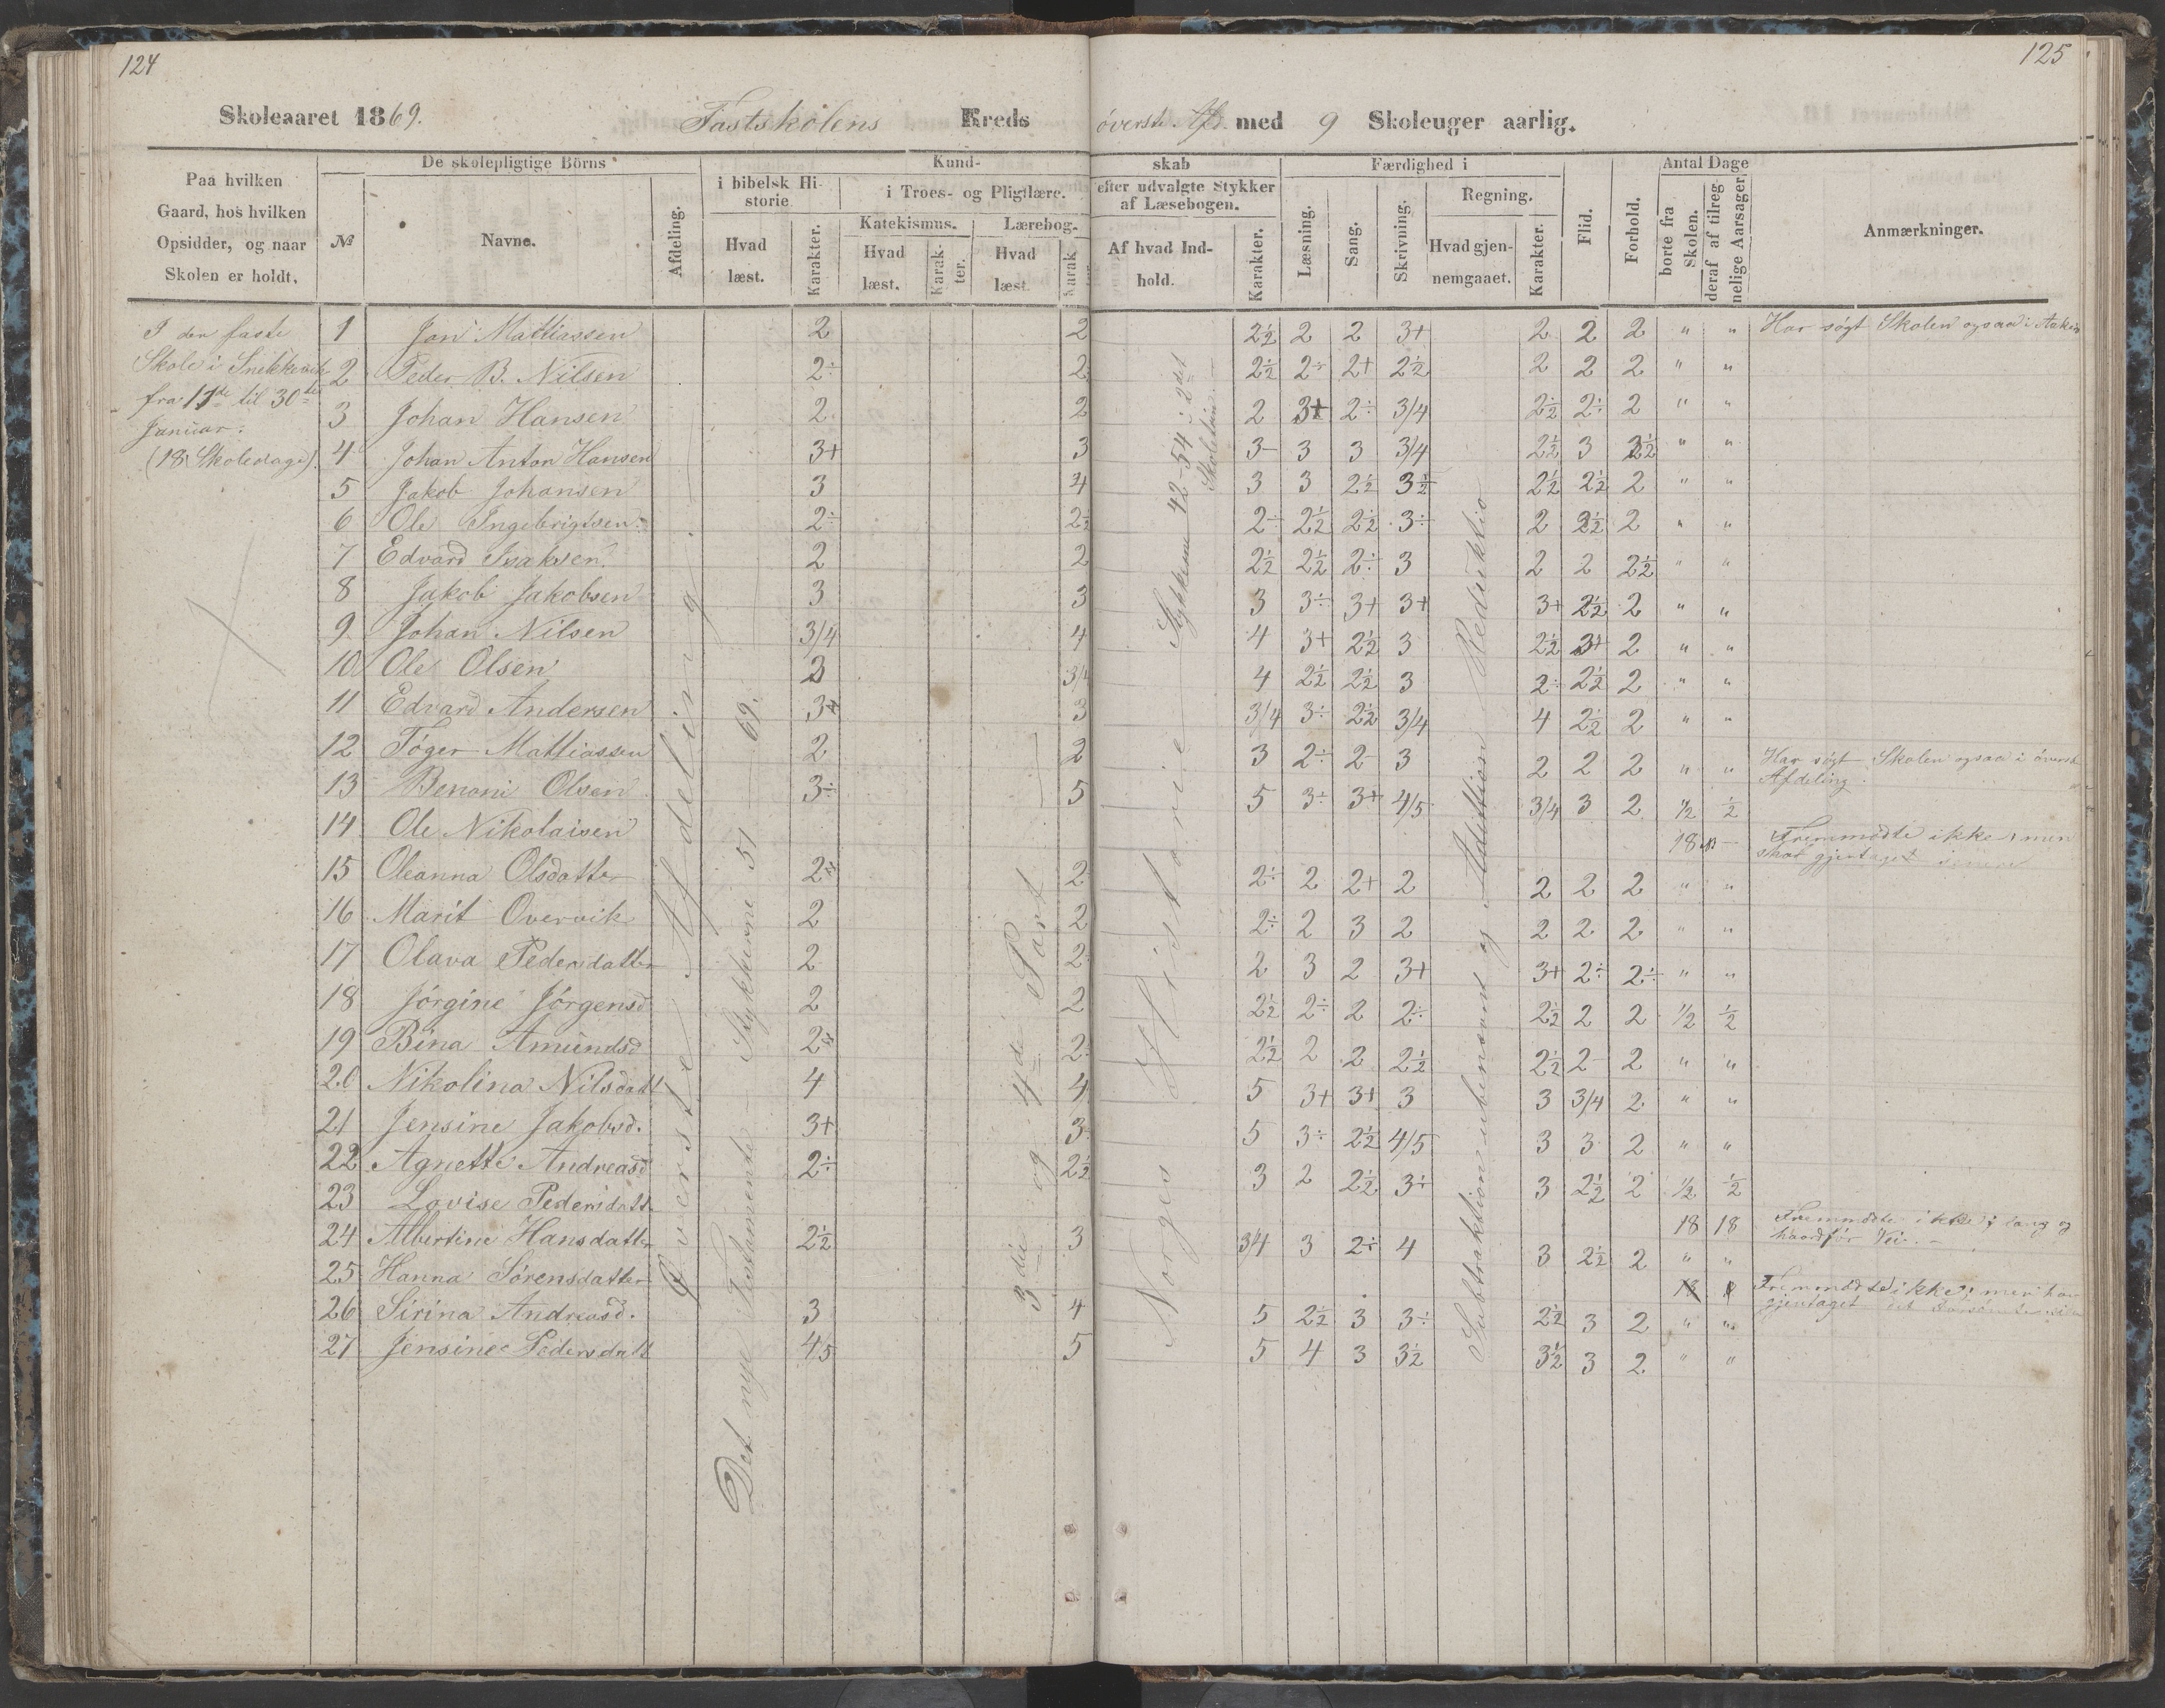 124
125
Skoleaaret 1869.
Fastskolens Kreds øverste Afd. med 9 Skoleuger aarlig.
Paa hvilken
Gaard, hos hvilken
Opsidder, og naar
Skolen er holdt.
De skolepligtige Börns
№
Navne.
Afdeling.
Kund-
i bibelsk Hi-
storie
Hvad
læst.
Karakter.
i Troes- og Pligtlære.
Katekismus.
Hvad
læst.
Karak-
ter.
Lærebog.
Hvad
læst
Karak
skab
efter udvalgte Stykker
af Læsebogen.
Af hvad Ind-
hold.
Karakter.
Færdighed i
Læsning.
Sang.
Skrivning.
Regning.
Hvad gjen-
nemgaaet.
Karakter.
Flid.
Forhold.
Antal Dage
borte fra
Skolen.
deraf af tilreg-
nelige Aarsager.
Anmærkninger.
I den faste
Skole i
fra 11te til 30te
Januar.
(18 Skoledage).
Øverste Afdeling.
Det nye Testamente Stykkerne 51 — 69.
3die og 4de Part
Norges Historie Stykkerne 42-54 i 2det
Subtraktion ubenævnt og Addition Reduktio
1 Jon Mattiassen 2 2 2½ 2 2 3+ 2 2 2 " " Har søgt Skolen ogsaa i
2 Peder B. Nilsen 2÷ 2 2½ 2÷ 2+ 2½ 2 2 2 " "
3 Johan Hansen 2 2 2 3+ 2÷ 3/4 2½ 2÷ 2 " "
4 Johan Anton Hansen 3+ 3 3- 3 3 3/4 2½ 3 2½ " "
5 Jakob Johansen 3 4 3 3 2½ 3½ 2½ 2½ 2 " "
6 Ole Ingebrigtsen 2÷ 2½ 2÷ 2½ 2½ 3÷ 2 2½ 2 " "
7 Edvard Isaksen 2 2 2½ 2½ 2÷ 3 2 2 2½ " "
8 Jakob Jakobsen 3 3 3 3÷ 3+ 3+ 3+ 2½ 2 " "
9 Johan Nilsen 3/4 4 4 3+ 2½ 3 2½ 3+ 2 " "
10 Ole Olsen 3 3/4 4 2½ 2½ 3 2÷ 2½ 2 " "
11 Edvard Andersen 3+ 3 3/4 3÷ 2½ 3/4 4 2½ 2 " "
12 Tøger Mattiassen 2 2 3 2÷ 2 3 2 2 2 " " Har søgt Skolen ogsaa i øverste
Afdeling.
13 Benoni Olsen 3÷ 5 5 3÷ 3+ 4/5 3/4 3 2 ½ ½
14 Ole Nikolaisen 18 — Fremmødte ikke, men
skal gjentaget senere
15 Oleanna Olsdatter 2÷ 2 2÷ 2 2+ 2 2 2 2 " "
16 Marit Overvik 2 2 2÷ 2 3 2 2 2 2 " "
17 Olava Pedersdatter 2 2 2 3 2 3+ 3+ 2÷ 2÷ " "
18 Jørgine Jørgensd 2 2 2½ 2÷ 2 2÷ 2½ 2 2 ½ ½
19 Bina Amundsd 2÷ 2 2½ 2 2 2½ 2½ 2 2 " "
20 Nikolina Nilsdatt 4 4 5 3+ 3+ 3 3 3/4 2 " "
21 Jensine Jakobsd. 3+ 3 5 3÷ 2½ 4/5 3 3 2 " "
22 Agnette Andreasd 2÷ 2½ 3 2 2½ 3÷ 3 2½ 2 ½ ½
23 Lovise Pedersdatt 18 18 Fremmødte ikke; lang og
haardfør Vei.
24 Albertine Hansdatter 2½ 3 3/4 3 2÷ 4 3 2½ 2 " "
25 Hanna Sørensdatter Fremmødte ikke; men har
gjentaget det
26 Sirina Andreasd. 3 4 5 2½ 3 3÷ 2½ 3 2 " "
27 Jensine Pedersdatt 4/5 5 5 4 3 3½ 3½ 3 2 " "